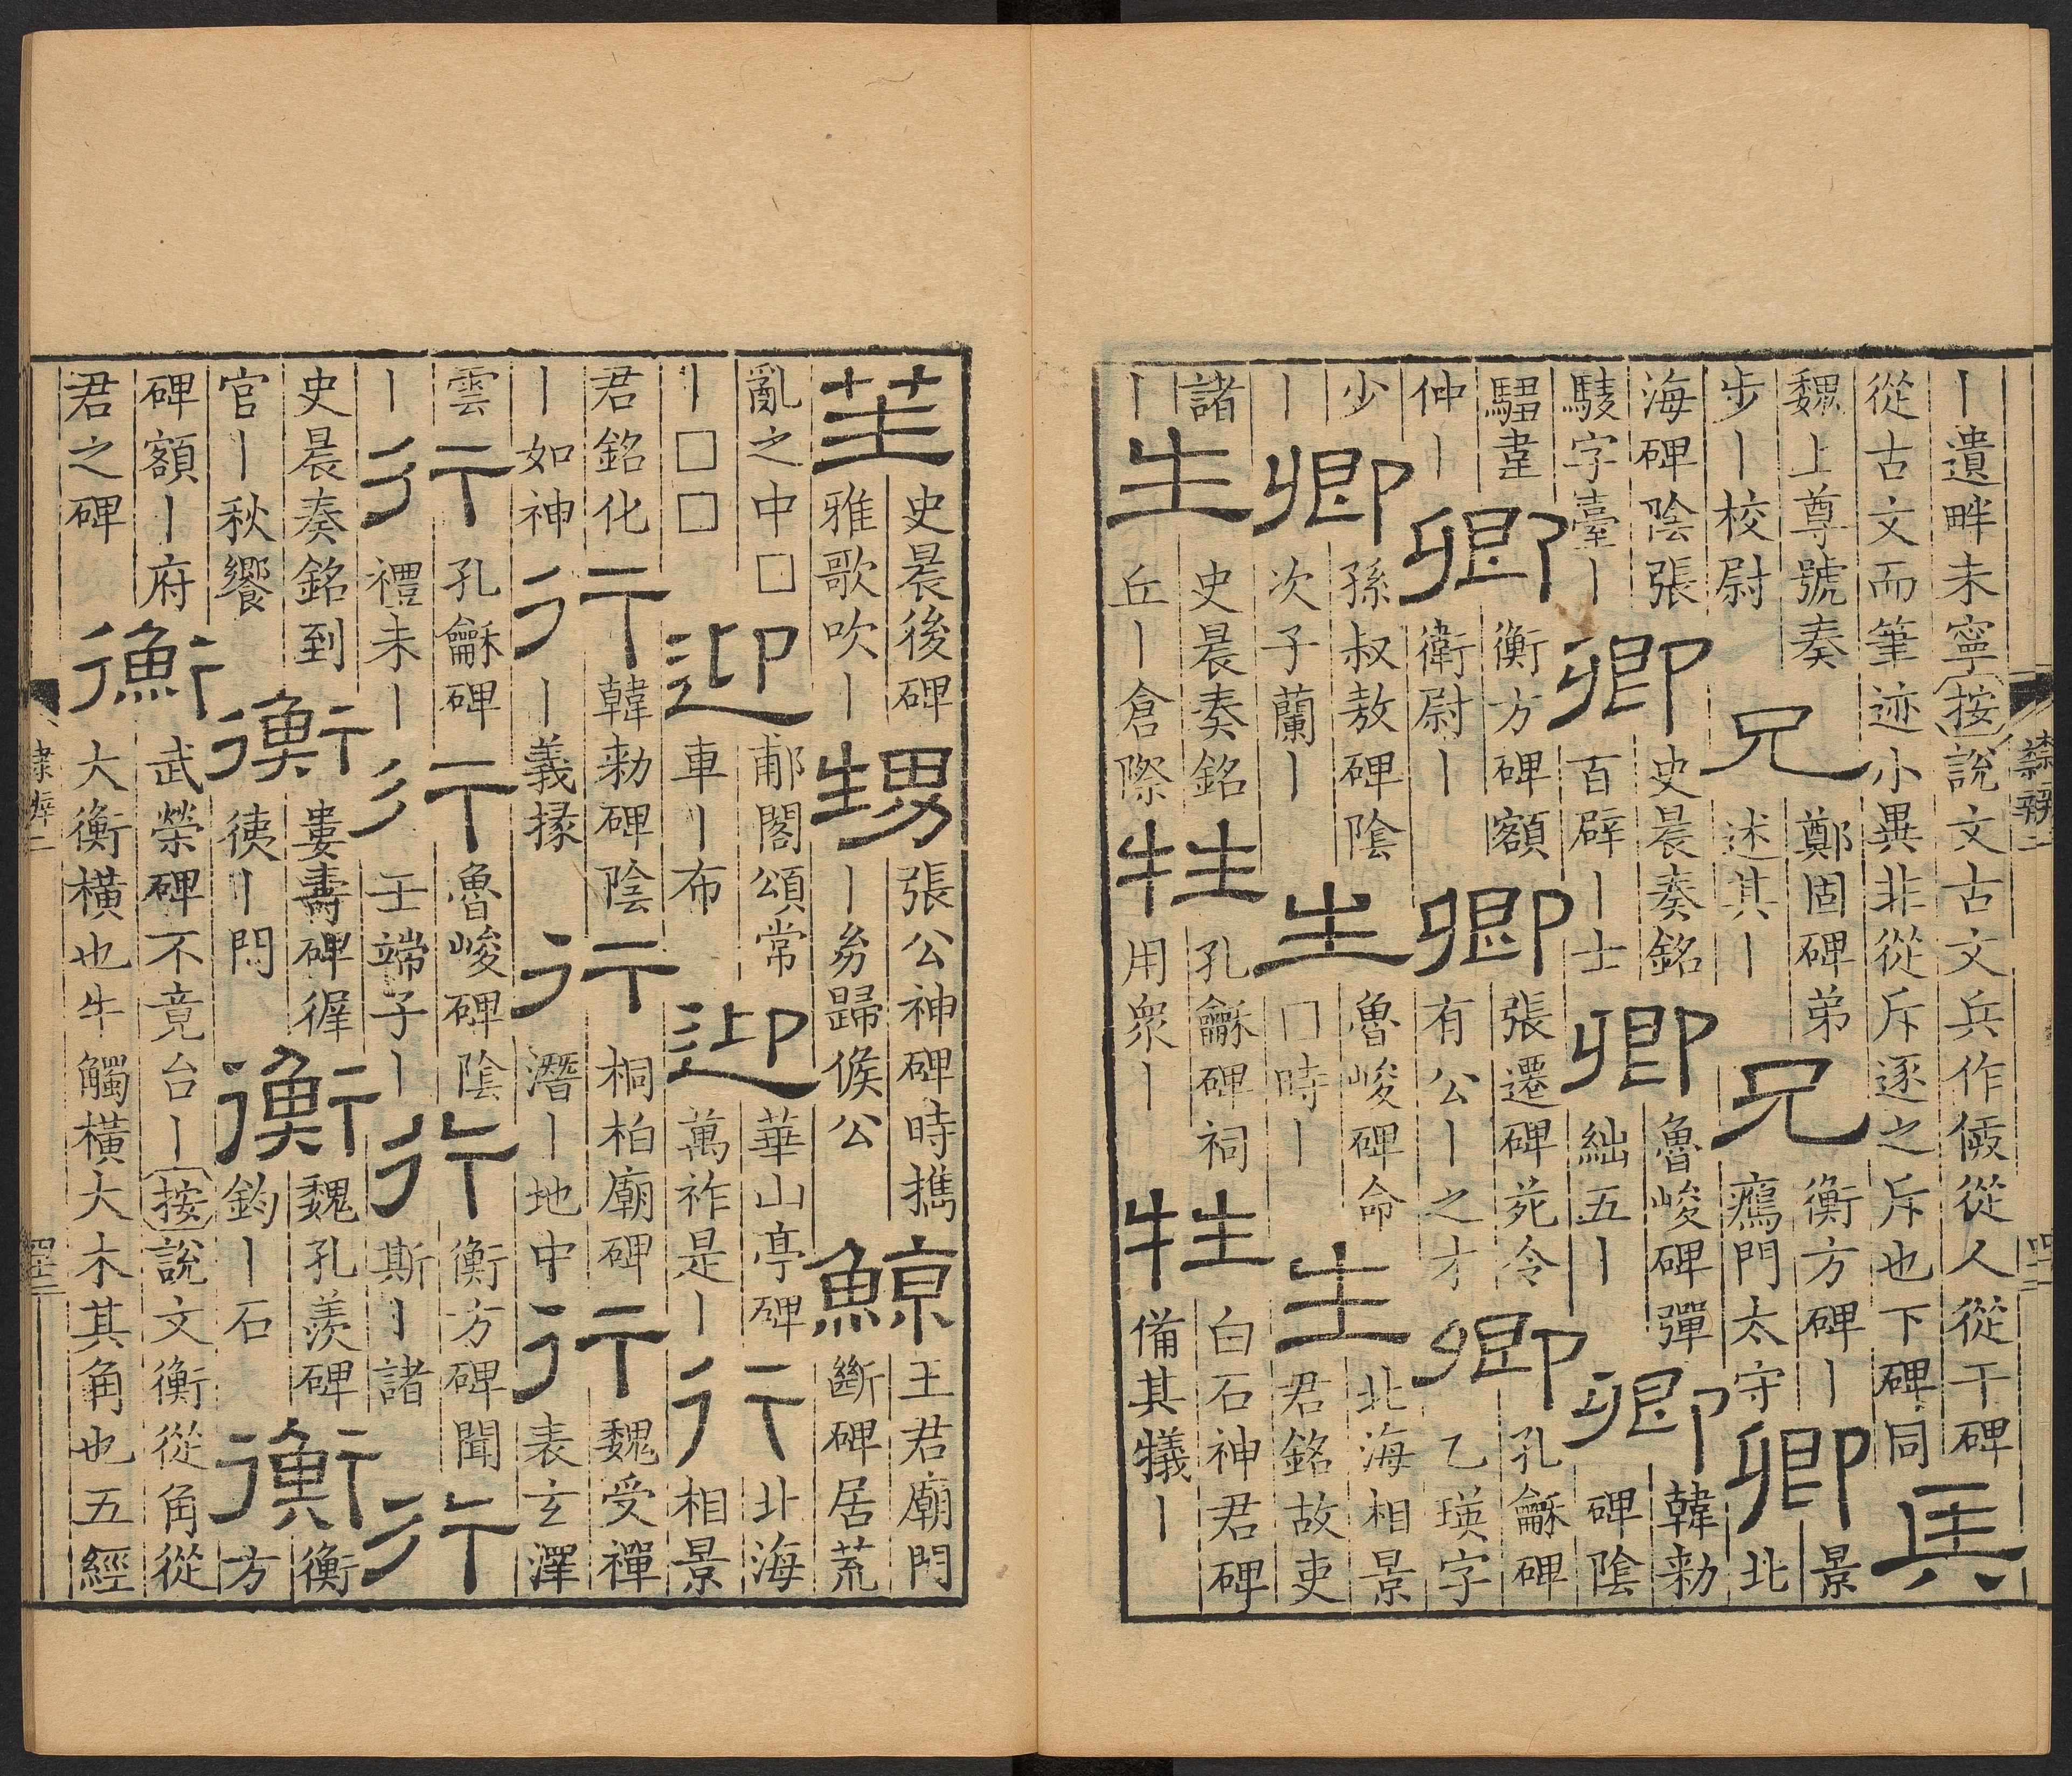 丨遺畔未寧按說文古文兵作㑃從人從干碑
從古文而筆迹小異非從斥逐之斥也下碑同
兵
魏上尊號奏
步丨校尉
兄
鄭固碑弟
述其丨
兄
衡方碑丨
鴈門太守
卿
景
北
海碑陰張
字臺丨
卿
史晨奏銘
百辟丨士
卿
魯峻碑彈
絀五丨
卿
韓勑
碑陰
韋
仲丨
卿
衡方碑額
衛尉丨
卿
張遷碑苑令
有公丨之才
卿
孔龢碑
乙瑛字
少
丨
卿
孫叔敖碑陰
次子蘭丨
生
魯峻碑命
□時丨
生
北海相景
君銘故吏
諸
丨
生
史晨奏銘
丘丨倉際
牲
孔龢碑祠
用衆丨
牲
白石神君碑
備其犧丨
隸辨二
笙
史晨後碑
雅歌吹丨
甥
張公神碑時攜
丨㓜歸候公
鯨
王君廟門
斷碑居荒
亂之中□
丨□□
迎
郙閣頌常
車丨布
迎
華山亭碑
萬祚是丨
行
北海
相景
君銘化
丨如神
行
韓勑碑陰
丨義掾
行
桐柏廟碑
潛丨地中
行
魏受禪
表玄澤
雲
丨
行
孔龢碑
禮未丨
行
魯峻碑陰
壬端子丨
行
衡方碑聞
斯丨諸
行
史晨奏銘到
官丨秋饗
衡
婁壽碑徲
㣟丨門
衡
魏孔羨碑
鈞丨石
衡
衡
方
碑額丨府
君之碑
衡
武榮碑不竟台丨按說文衡從角從
大衡橫也牛觸橫大木其角也五經
隸辨二